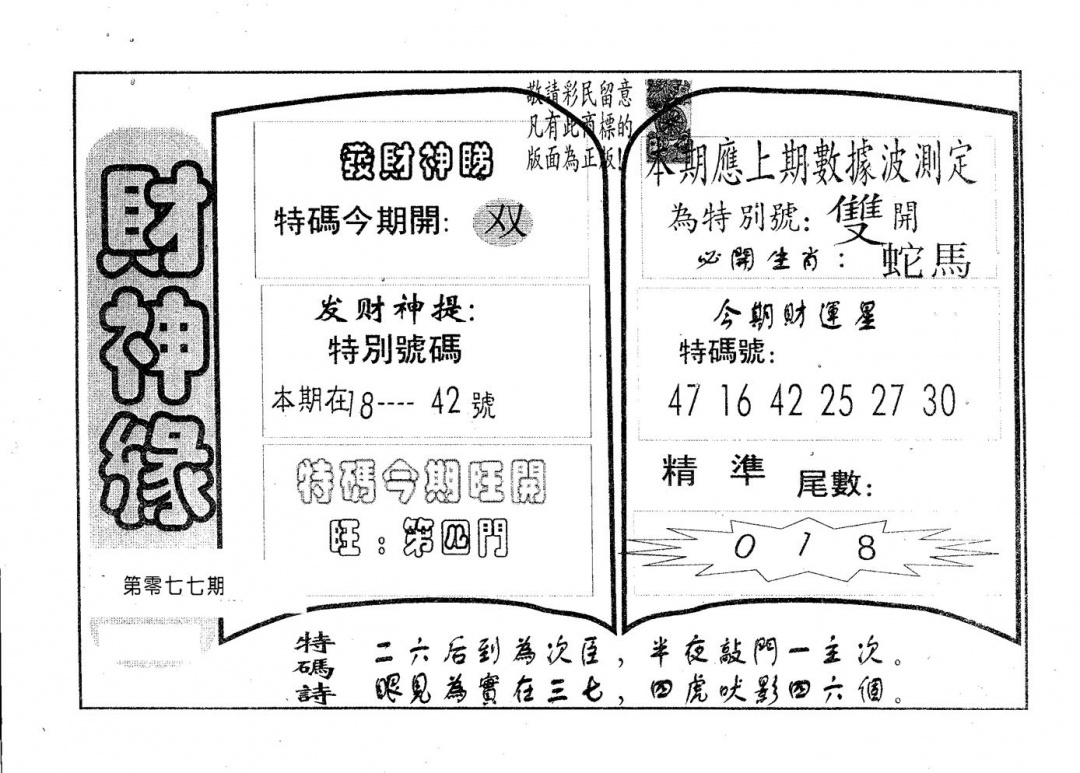 財神緣
第零七七期
敬請彩民留意
凡有此商標的
版面為正版!
發財神睇
特碼今期開: 双
发财神提:
特別號碼
本期在18---- 42號
特碼今期旺開
旺:第四門
本期應上期數據波測定
為特別號: 雙開
必開生肖: 蛇馬
今期財運星
特碼號:
47 16 42 25 27 30
精準 尾數:
0 1 8
特碼詩
二六后到為次臣,半夜敲門一主次。
眼見為實在三七,四虎吠影四六個。